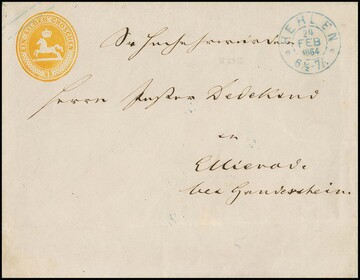 EIN SILBER GROSCHEN
HEHLEN
24
FEB
1864
6½-7
Sr Hochehrwürden
Herrn Pastor Dedekind
in
Ellierode
bei Gandersheim.